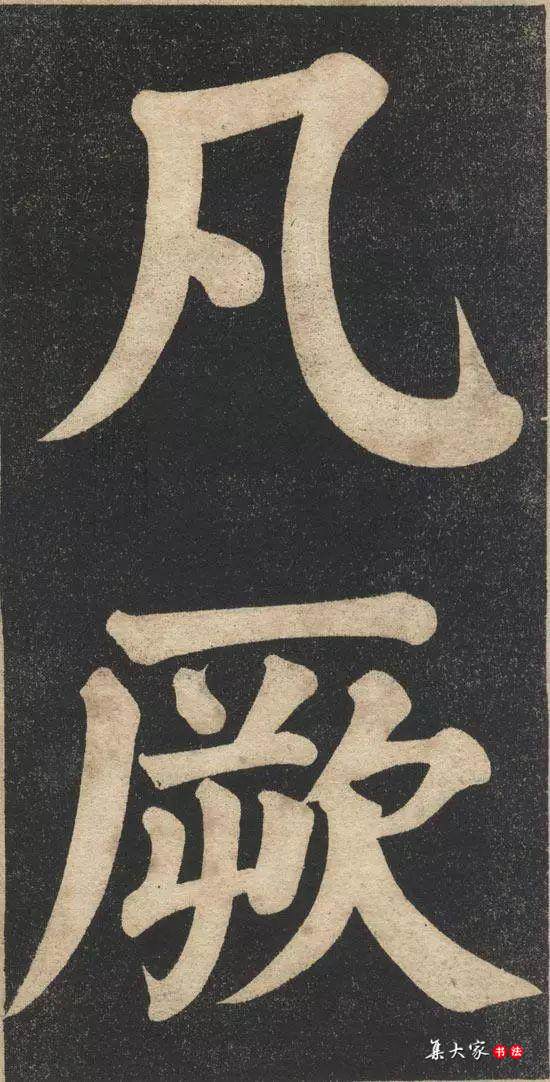 凡
厥
集大家书法